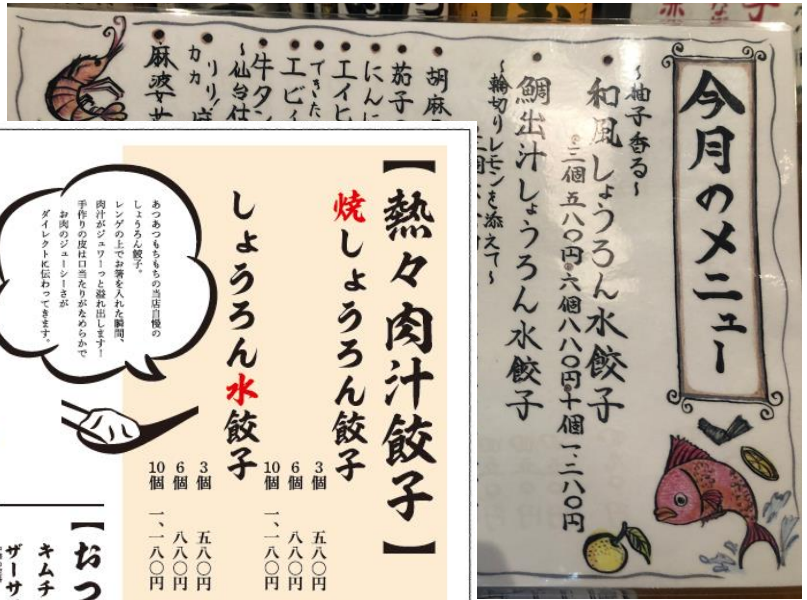 今月のメニュー
～柚子香る～
和風しょうろん水餃子
三個五八〇円 六個八八〇円 十個一、二八〇円
鯛出汁しょうろん水餃子
～輪切りレモンを添えて～
胡麻
茄子の
にんに
エイヒ
てきた
エビ
牛タン
～仙台
カリ
麻婆
【熱々肉汁餃子】
焼しょうろん餃子
3個 五八〇円
6個 八八〇円
10個 一、一八〇円
しょうろん水餃子
3個 五八〇円
6個 八八〇円
10個 一、一八〇円
あつあつもちもちの当店自慢の
しょうろん餃子。
レンゲの上でお箸を入れた瞬間、
肉汁がジュワーっと溢れ出します!
手作りの皮は口当たりがなめらかで
お肉のジューシーさが
ダイレクトに伝わってきます。
【おつ
キムチ
ザーサ